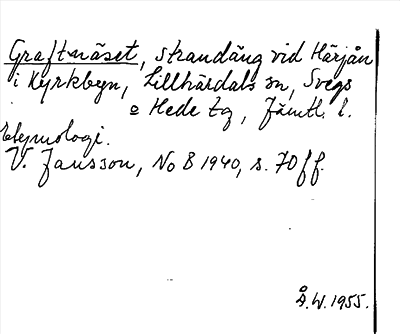 Graftnäset, strandäng vid Härjån
i Kyrkbyn, Lillhärdals sn, Svegs
o Hede tg, Jämtl. l.
Etymologi.
V. Jansson, NoB 1940, s. 70 ff.
Å.W. 1955.